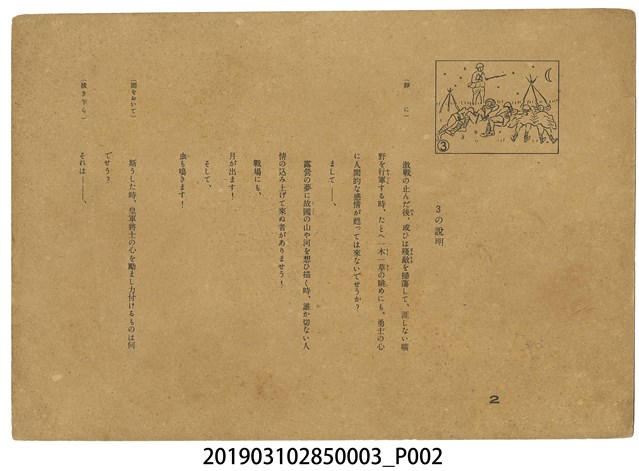 ③
3の說明
(靜に)
激戰の止んだ後、或ひは殘敵を掃蕩して、涯しない曠
野を行軍する時、たとへ一木一草の眺めにも、勇士の心
に人間的な感情が甦つては來ないでせうか?
まして――、
露營の夢に故國の山や河を想ひ描く時、誰か切ない人
情の込み上げて來ぬ者がありませう!
戰場にも、
月が出ます!
そして、
虫も鳴きます!
(間をおいて)
斯うした時、皇軍將士の心を勵まし力付けるものは何
でせう?
(拔き乍ら)
それは――、
2
201903102850003_P002